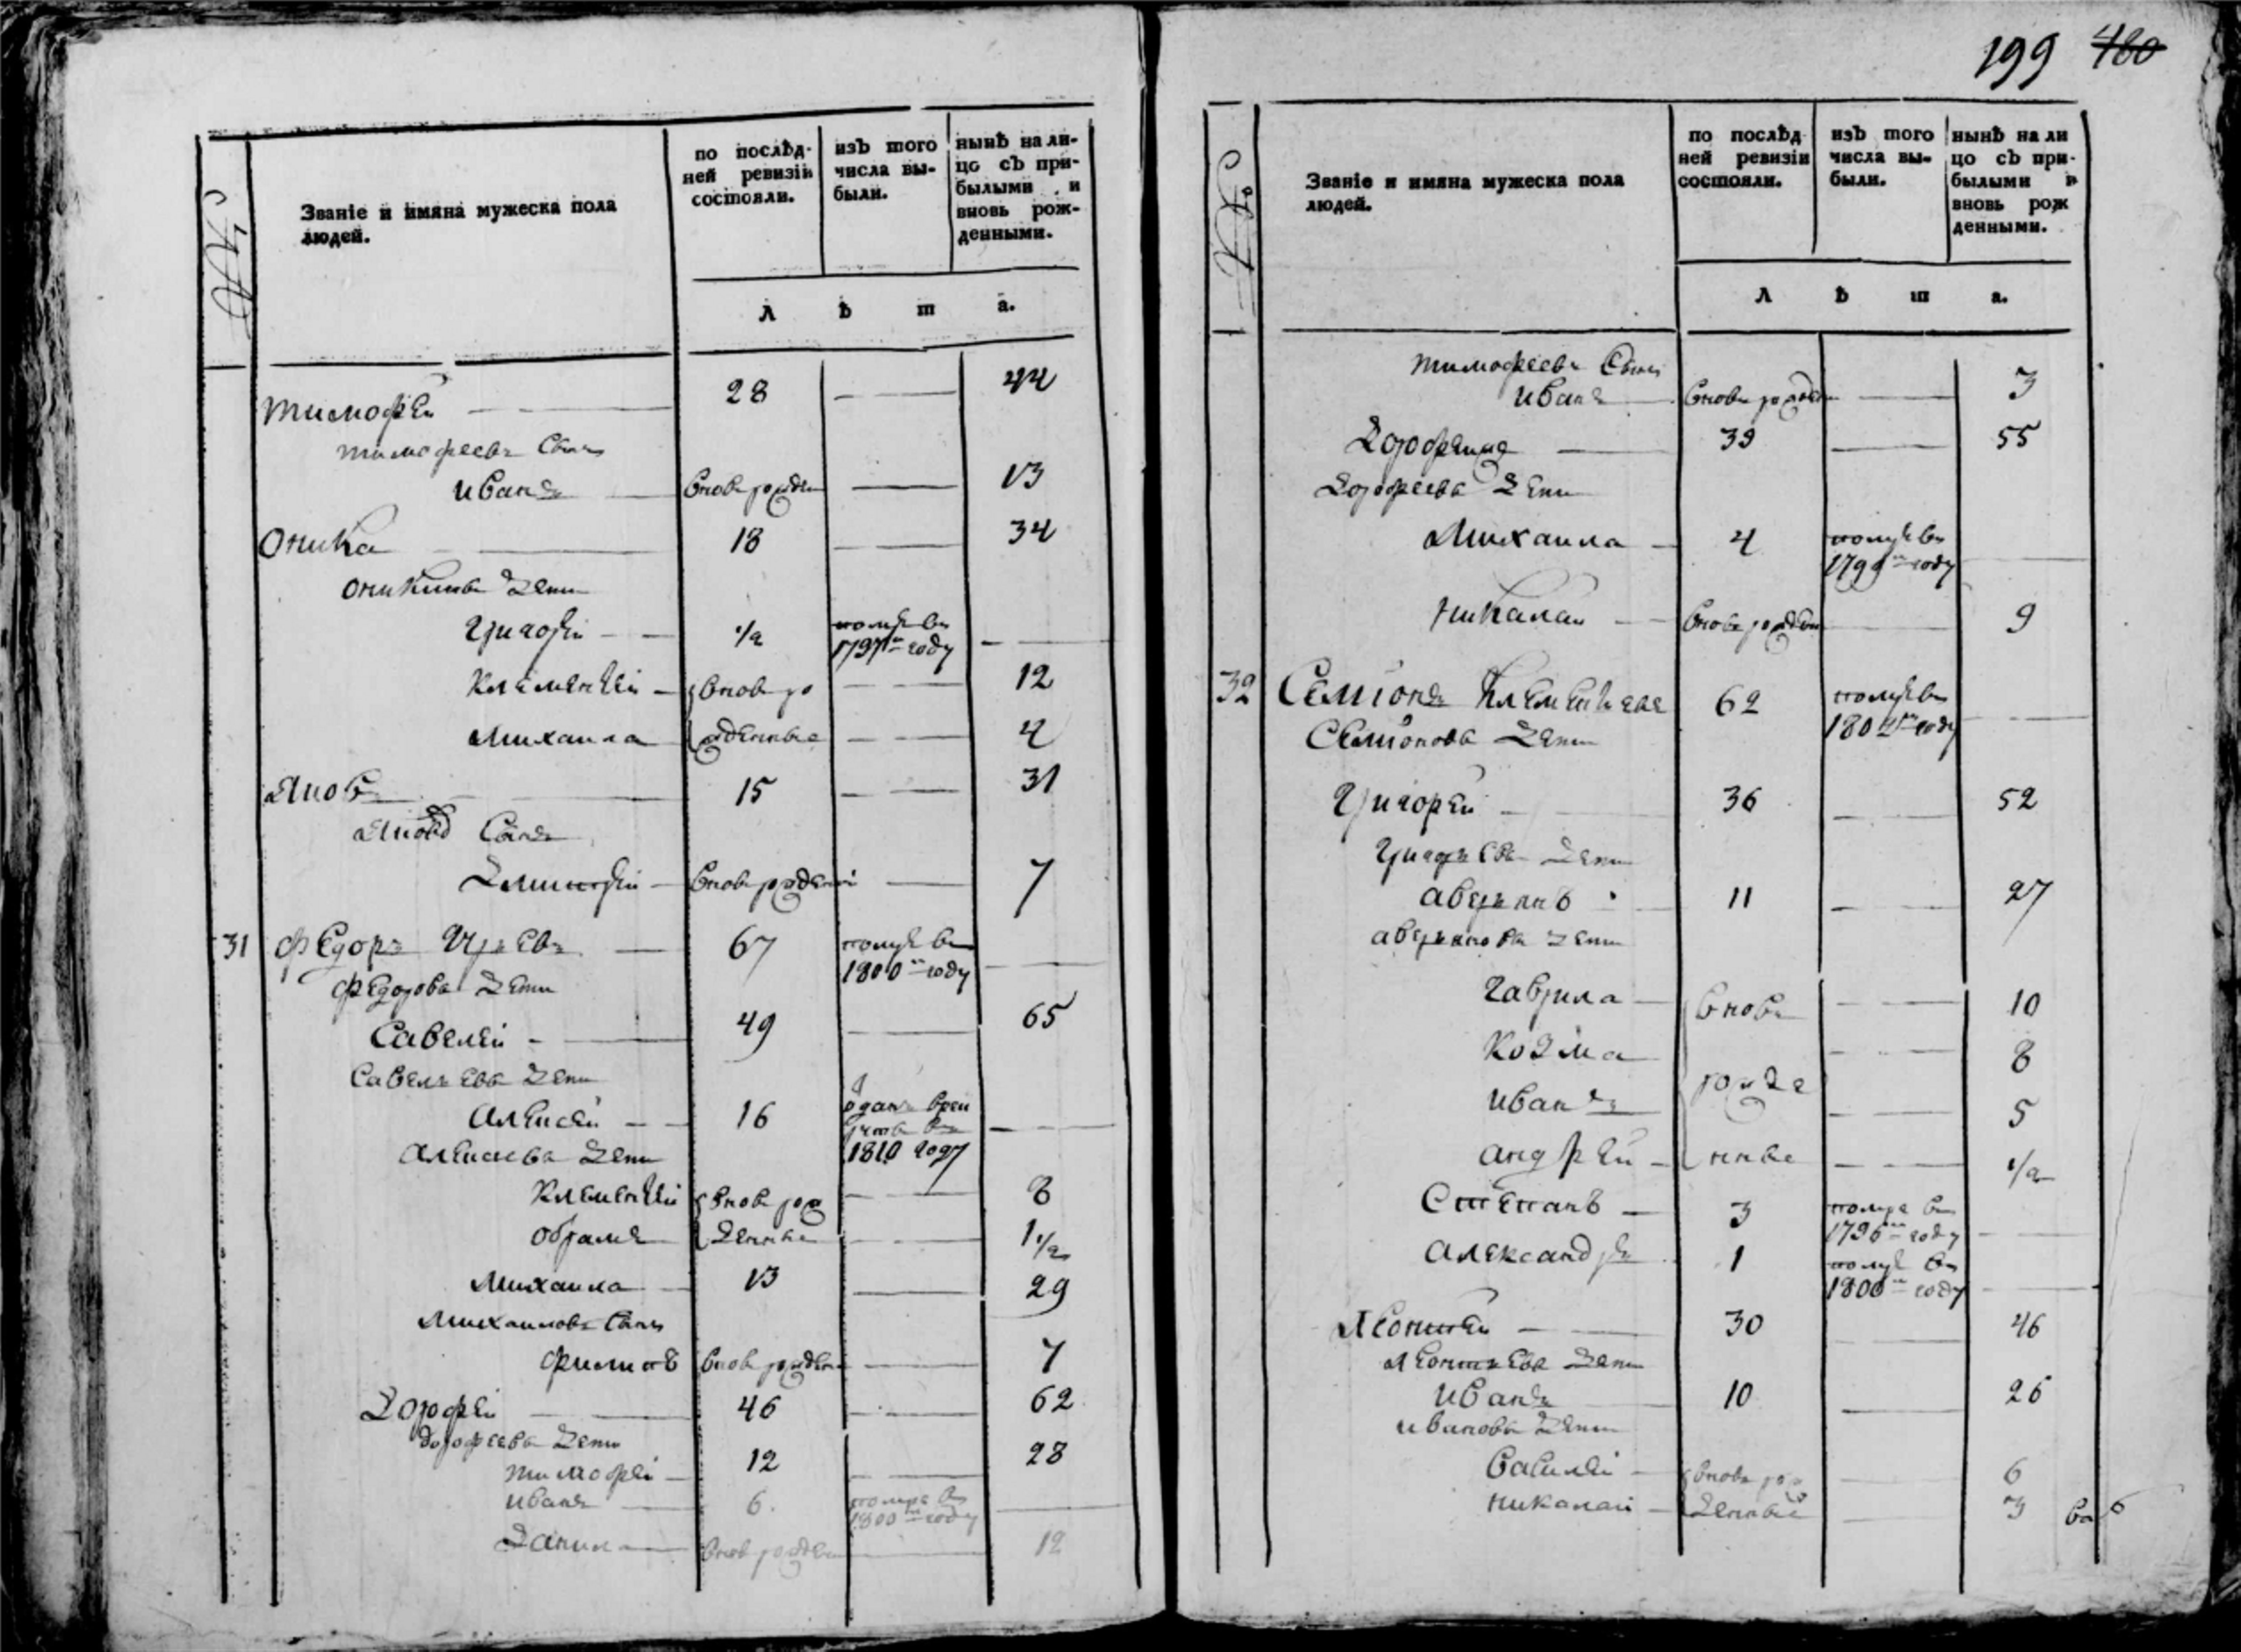 199 480
№
Званіе и имяна мужеска пола
людей.
по послѣд-
ней ревизіи
состояли.
изъ того
числа вы-
были.
нынѣ на ли-
цо съ при-
былыми и
вновь рож-
денными.
л ѣ т а.
Тимофей — 28 — 44
Тимофеевъ Сынъ
Иванъ — вновь рожден — 13
Оника — 18 — 34
Оникины Дети
Григорей — 1/2 помре въ
1797м году —
Клементей — вновь ро — 12
Михаила жденные — 4
15 — 31
Сынъ
Дмитрей — вновь рожденной — 7
31 Федоръ Юрьевъ — 67 помре въ
1800м году —
Федоровы Дети
Савелей — 49 — 65
Савельевы Дети
Алексей — 16 отданъ в рек
руты въ
1810 году —
Алексеевы Дети
Клементей вновь рож — 8
Обрамъ денные — 1 1/2
Михаила — 13 — 29
Михаиловъ Сынъ
Филипъ вновь рожден — 7
Дорофей — 46 — 62
Дорофеевы Дети
Тимофей — 12 — 28
Иванъ — 6 помре въ
1800м году —
Данила — вновь рожден — 12
№
Званіе и имяна мужеска пола
людей.
по послѣд
ней ревизіи
состояли.
изъ того
числа вы-
были.
нынѣ на ли
цо съ при-
былыми и
вновь рож
денными.
л ѣ т а.
Тимофеевъ Сынъ
Иванъ — вновь рожден — 3
39 — 55
Дорофеевы Дети
Михаила — 4 помре въ
1799м году —
Никалай — вновь рожден — 9
32 Семіонъ Клементьевъ 62 помре въ
1802м году —
Семіоновы Дети
Григорей — 36 — 52
Григорьевы Дети
Аверьянъ 11 — 27
Аверьяновы Дети
Гаврила — вновь — 10
Козма — 8
Иванъ рожде — 5
Андрей — нные — 1/2
Степанъ — 3 помре въ
1796м году —
Александръ 1 помре въ
1800м году —
Леонтей — 30 — 46
Леонтьевы Дети
Иванъ 10 — 26
Ивановы Дети
Савилей — вновь рож — 6
Никалай — денные — 3